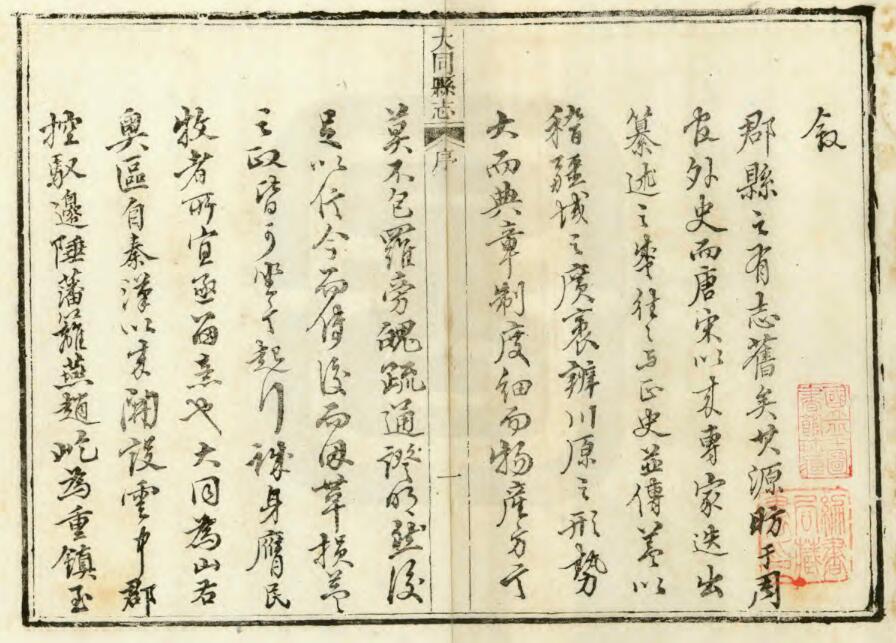 敘
郡縣之有志舊矣其源昉于周
官外史而唐宋以來專家迭出
纂述之業往之與正史並傳蓋以
稽疆域之廣袤辨川原之形勢
大而典章制度細而物產方言
大同縣志
序
一
莫不包羅旁魄疏通證明然後
足以信今而傳後而因革損益
之政皆可坐言起行誠身膺民
牧者所宜亟留意也大同為山右
奧區自秦漢以來開設雲中郡
控馭邊陲藩籬燕趙屹為重鎮至